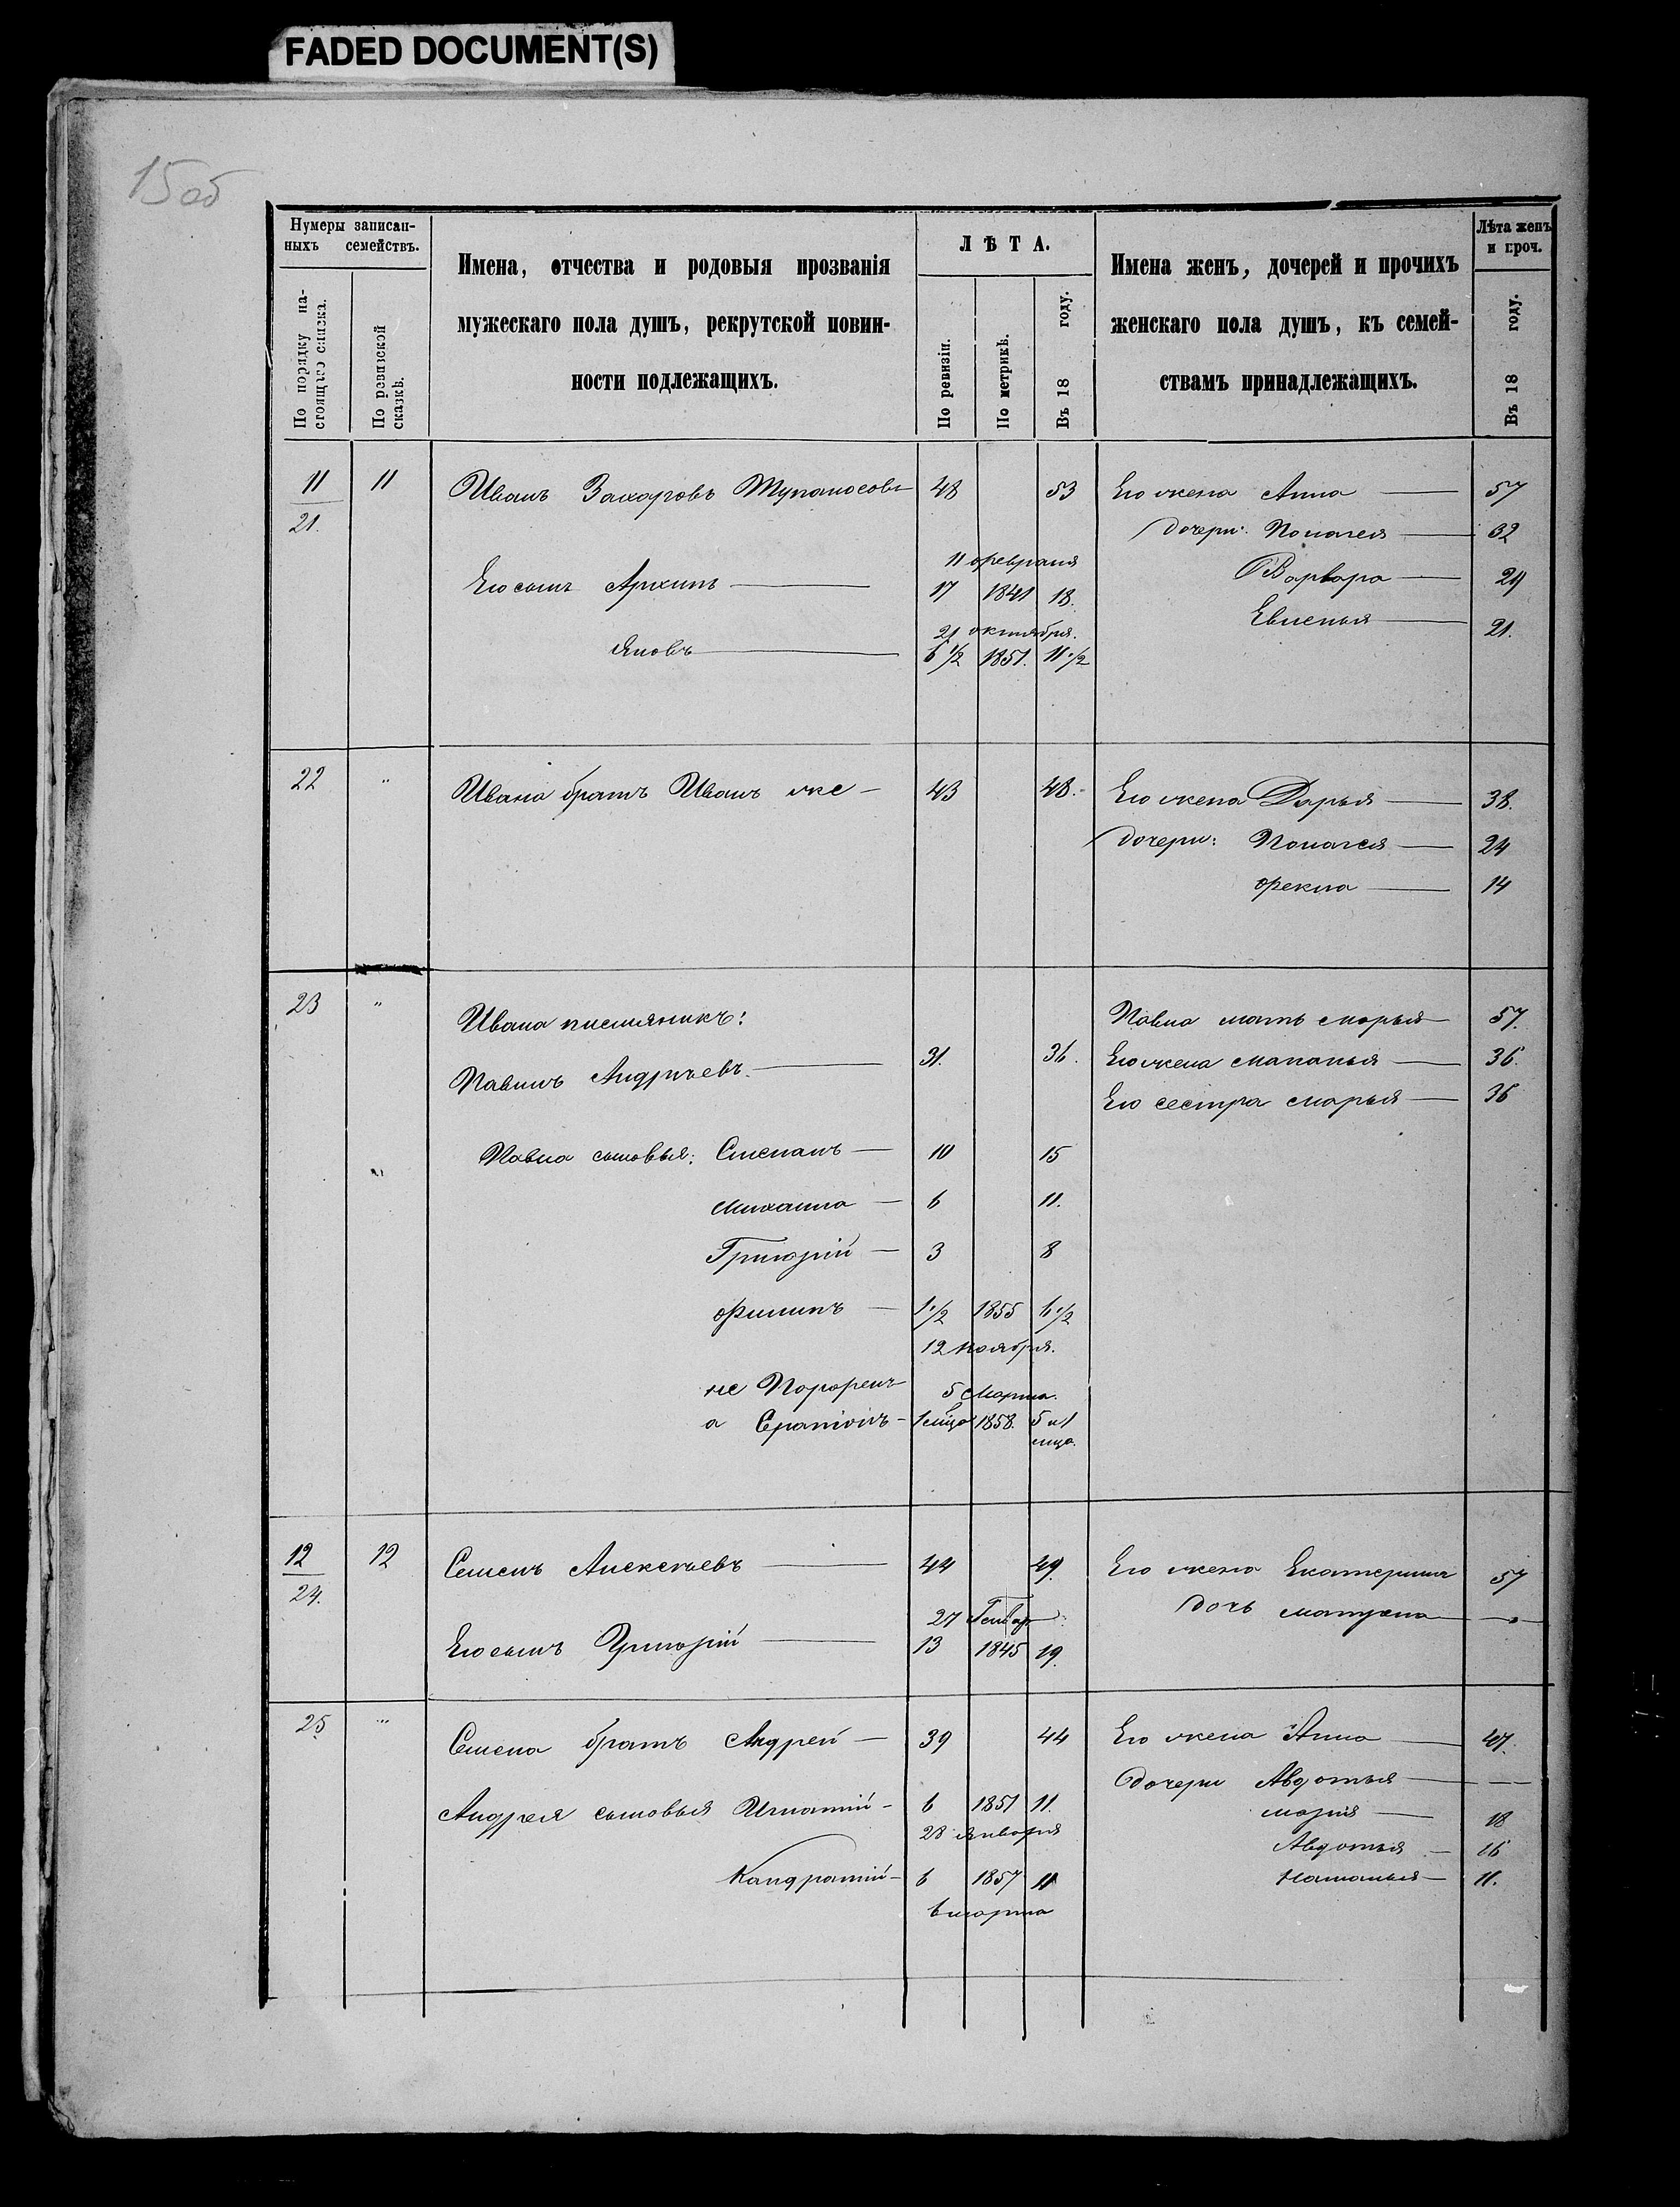 FADED DOCUMENT(S)
15 об
Нумеры записан-
ныхъ семействъ.
По порядку на-
стоящаго списка.
По ревизской
сказкѣ.
Имена, отчества и родовыя прозванія
мужескаго пола душъ, рекрутской повин-
ности подлежащихъ.
ЛѢТА.
По ревизіи.
По метрикѣ.
Въ 18 году.
Имена женъ, дочерей и прочихъ
женскаго пола душъ, къ семей-
ствамъ принадлежащихъ.
Лѣта женъ
и проч.
Въ 18 году.
11 11 Иванъ Захаровъ 48 53 Его жена Анна 57
21. дочери: Палагея 32
11 февраля
Его сынъ Архипъ 17 1841 18. Варвара 29
21 октября. Евгенья 21.
Яковъ 6 1/2 1851. 11 1/2
22 " Ивана братъ Иванъ же 43 48. Его жена Дарья 38.
дочери: Палагея 24
Фекла 14
23 " Ивана племяникъ: Павла мать Марья 57.
Павилъ Андреевъ. 31. 36. Его жена Маланья 36.
Его сестра Марья 36
Павла сыновья: Степанъ 10 15
Михаила 6 11.
Григорій 3 8
Филипъ 1 1/2 1855 6 1/2
12 Ноября.
не 5 Марта.
а 1 мца 1858. 5 и 1
мца.
12 12 Семенъ Алексѣевъ 44 49. Его жена Екатерина 57
24. дочь Матрена
27 Генвар.
Его сынъ Григорій 13 1845 19.
25 " Семена братъ Андрей 39 44 Его жена Анна 47.
дочери Авдотья
Андрея сыновья Игнатій 6 1851 11. Марія 18
28 Января
Авдотья 16
Кандратій 6 1857 11 Наталья 11.
6 марта